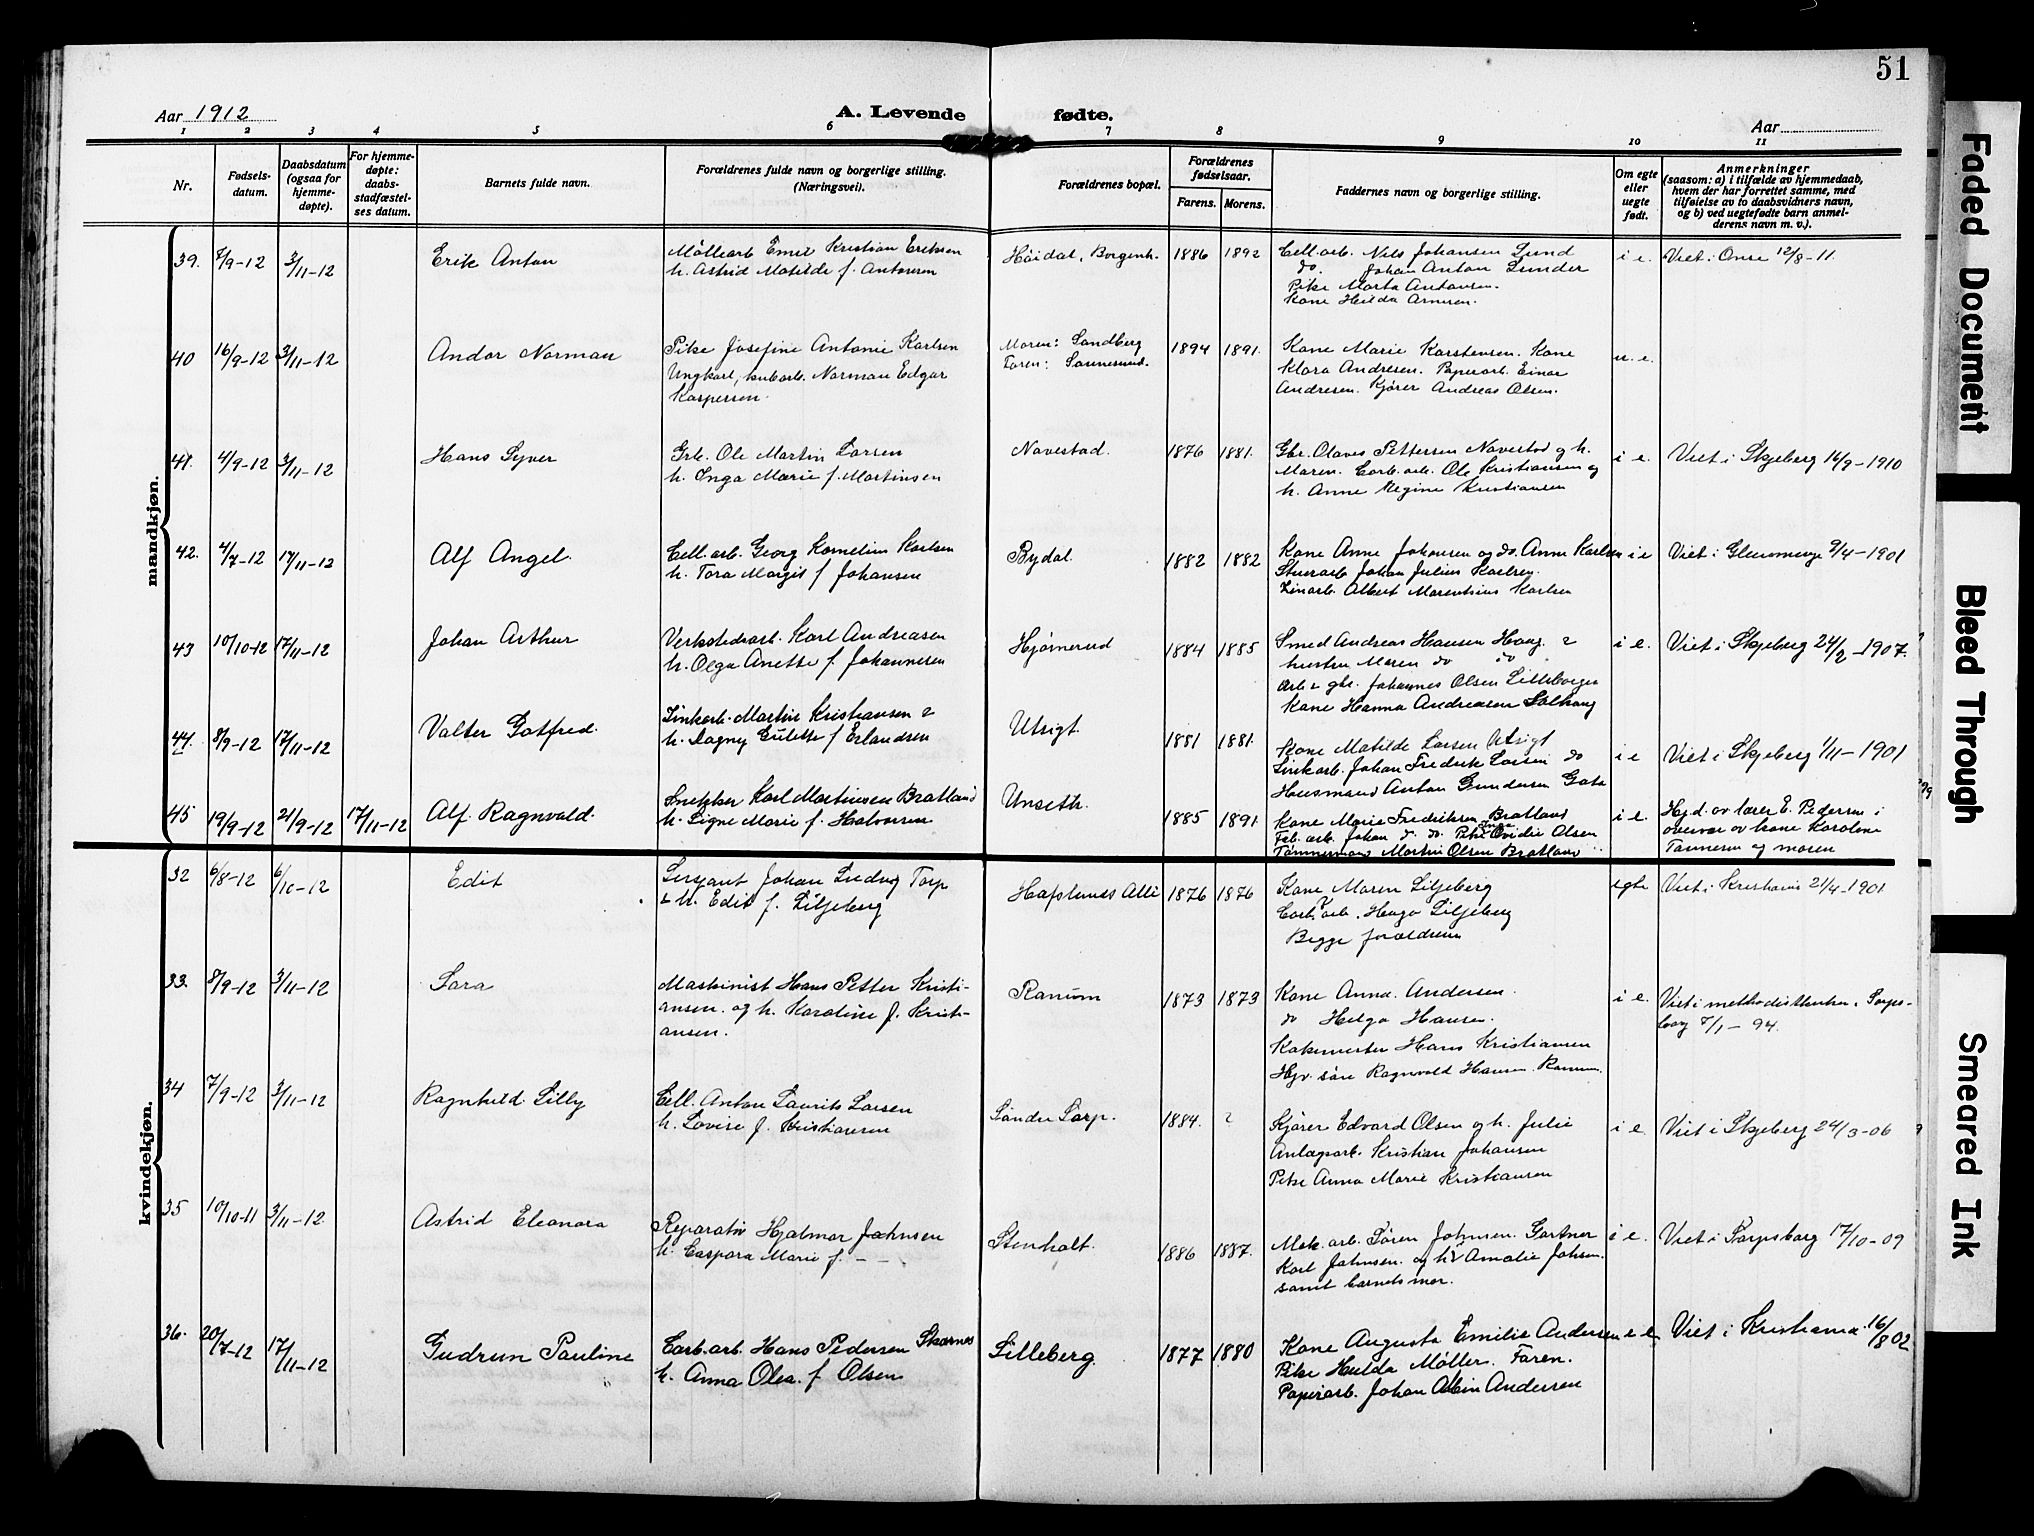 51
Aar 1912
A. Levende fødte.
Aar
1 2 3 4 5 6 7 8 9 10 11
Nr.
Fødsels-
datum.
Daabsdatum
(ogsaa for
hjemme-
døpte).
For hjemme-
døpte:
daabs-
stadfæstel-
ses datum.
Barnets fulde navn.
Forældrenes fulde navn og borgerlige stilling.
(Næringsvei).
Forældrenes bopæl.
Forældrenes
fødselsaar.
Farens. Morens.
Faddernes navn og borgerlige stilling.
Om egte
eller
uegte
født.
Anmerkninger
(saasom: a) i tilfælde av hjemmedaab,
hvem der har forrettet samme, med
tilføielse av to daabsvidners navn,
og b) ved uegtefødte barn anmel-
derens navn m. v.).
mandkjøn.
39. 7/9-12 3/11-12 Erik Anton
Møllearb Emil Kristian Eriksen
h. Astrid Matilde f. Antonsen
Høidal, Borgenh. 1886 1892
Cell.arb. Nils Johansen Lund
do. Johan Anton Lunder
Pike Marta Antonsen.
Kone Hilda Arnesen.
i e. Viet i Onsø 12/8-11.
40 16/9-12 3/11-12 Andor Norman
Pike Josefine Antonie Karlsen
Ungkarl, kubarb. Norman Edgar
Kaspersen.
Moren: Sandberg
Faren: Sannesund.
1894 1891.
Kone Marie Karstensen. Kone
Klara Andresen. Papirarb. Einar
Andresen. Kjører Andreas Olsen.
u. e.
41. 4/9-12 3/11-12 Hans Syver
Grb. Ole Martin Larsen
h. Inga Marie f. Martinsen
Navestad. 1876 1881.
Gbr. Olaves Pettersen Navestad og h.
Maren. Carb.arb. Ole Kristiansen og
h. Anne Regine Kristiansen
i e. Viet i Skjeberg 16/9-1910
42. 4/7-12 17/11-12 Alf Angel.
Cell.arb. Georg Kornelius Karlsen
h. Tora Margit f Johansen
Bydal. 1882 1882
Kone Anne Johansen og do. Anna Karlsen
Stuerarb Johan Julius Karlsen.
Zinkarb. Albert Marentsius Karlsen
i e Viet i Glemminge 9/4-1901
43 10/10-12 17/11-12 Johan Arthur
Verkstedsarb. Karl Andreasen
h. Olga Anette f. Johannesen
Hjørnerud 1884 1885
Smed Andreas Hansen Haug. &
hustru Maren do do
Arb & gbr. Johannes Olsen Lilleborger
Kone Hanna Andreasen Solhaug
i e. Viet i Skjeberg 24/2-1907.
44. 8/9-12 17/11-12 Valter Gotfred.
Zinkarb. Martin Kristiansen &
h. Dagny Gulette f Erlandsen
Utsigt. 1881 1881.
Kone Matilde Larsen Utsigt
Zinkarb. Johan Fredrik Larsen do
Husmand Anton Gundersen Gata
i e Viet i Skjeberg 1/11-1901
45 19/9-12 21/9-12 17/11-12 Alf Ragnvald.
Snekker Karl Martinsen Bratland
h. Signe Marie f. Halvorsen
Unseth. 1885 1891.
Kone Marie Fredriksen Bratland
Fab.arb. Johan do. do. Pike Inga Ovidie Olsen
Tømmermand Martin Olsen Bratland
i e. Hjd. av lærer E. Pedersen i
overvær av kone Karoline
Tannesen og moren
kvindekjøn.
32 6/8-12 6/10-12 Edit
Sersjant Johan Ludvig Torp
& h. Edit f. Liljeberg
Hafslunds Allé 1876 1876
Kone Maren Liljeberg
Carb.arb. Hugo Liljeberg
Begge forældrene
egte Viet i Kristiania 21/4-1901.
33. 8/9-12 3/11-12 Sara
Maskinist Hans Petter Kristi-
ansen. og h. Karoline f. Kristi-
ansen.
Ranum 1873 1873
Kone Anna. Andersen.
do Helga Hansen.
Kokemester Hans Kristiansen
Hjv. søn Ragnvald Hansen Ranum.
i e. Viet i methodistkirken i Sarps-
borg 7/1-94.
34 7/9-12 3/11-12 Ragnhild Lilly
Cell. Anton Laurits Larsen
h. Lovise f. Kristiansen
Søndre Sarp. 1884. ?
Kjører Edvard Olsen og h. Julie
Anlægsarb. Kristian Johansen
Pike Anna Marie Kristiansen
i e. Viet i Skjeberg 24/3-06
35 10/10-11 3/11-12. Astrid Eleonora
Reparatør Hjalmar Jahnsen
h. Caspara Marie f. — —
Stenhalt. 1886 1887.
Mek.arb. Søren Johnsen. Gartner
Karl Jahnsen. og h. Amalie Johsen.
samt barnets mor.
i e. Viet i Sarpsborg 17/10-09
36. 20/7-12 17/11-12 Gudrun Pauline
Carb.arb. Hans Pedersen Skarnes
h. Anna Olea. f Olsen
Lilleberg. 1877 1880
Kone Augusta Emilie Andersen
Pike Hulda Møller. Faren.
Papirarb. Johan Albin Andersen
i e Viet i Kristiania 16/8 02
Faded Document
Bleed Through
Smeared Ink